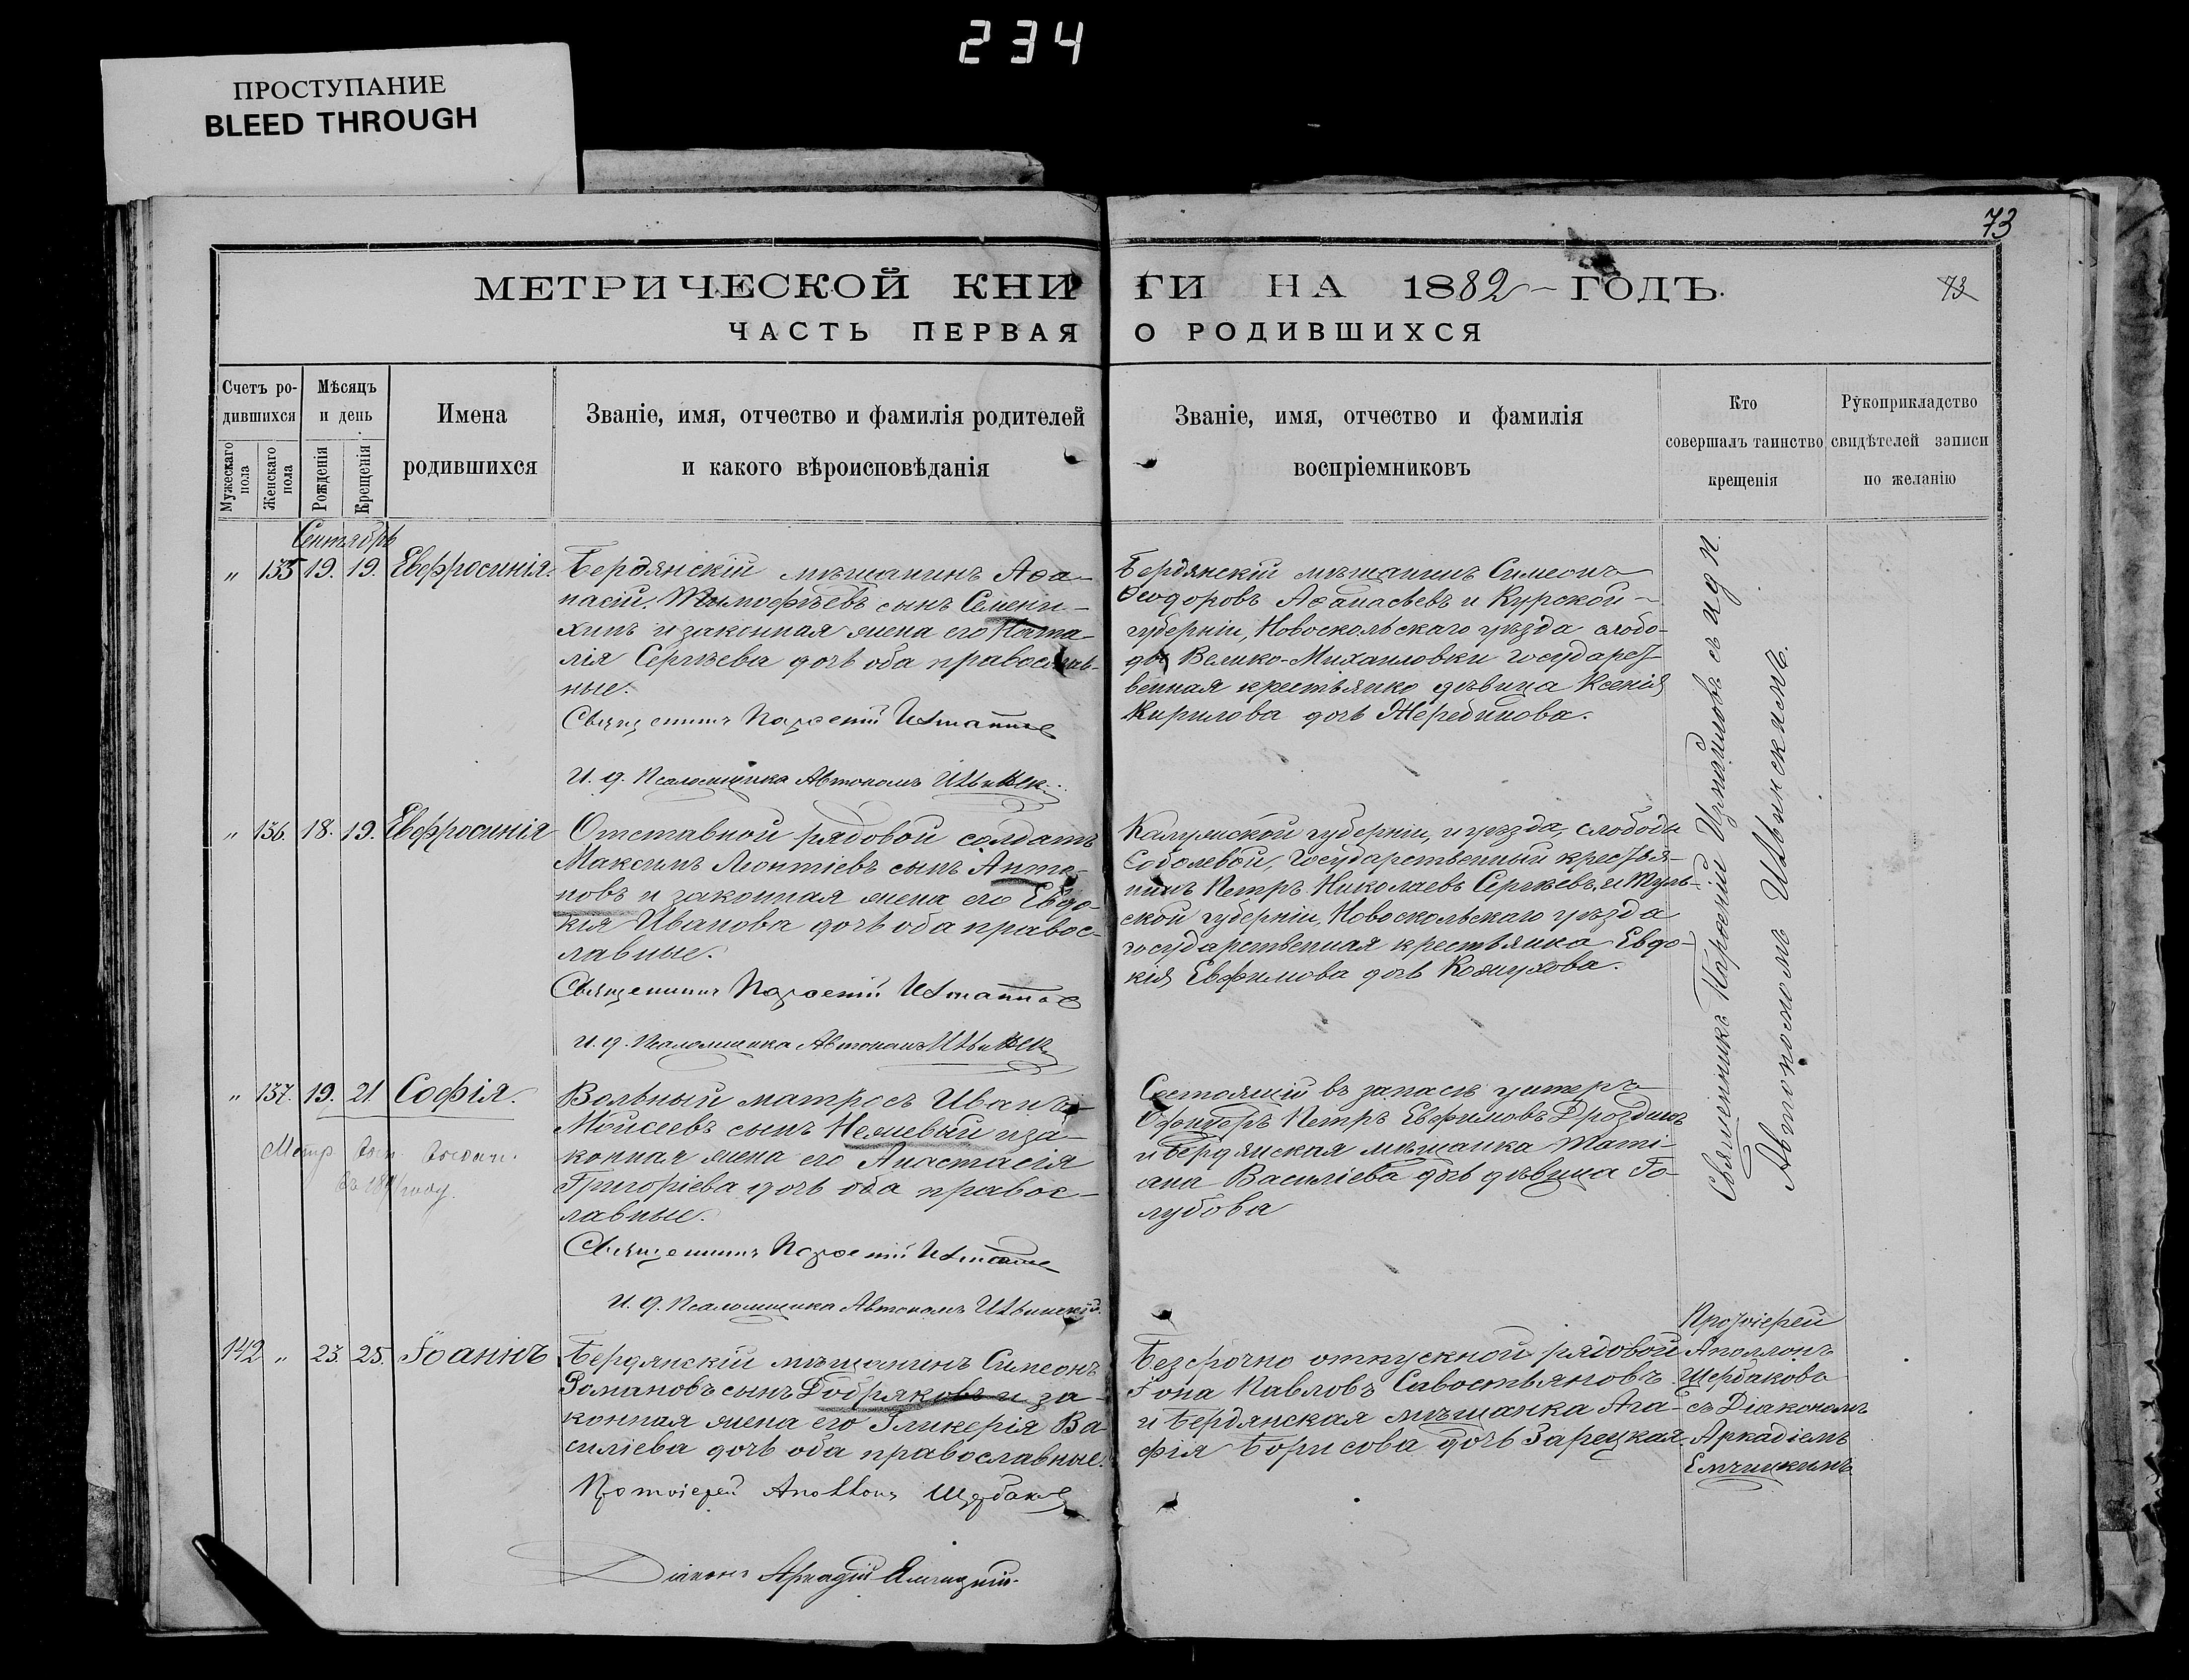 234
ПРОСТУПАНИЕ
BLEED THROUGH
73
МЕТРИЧЕСКОЙ КНИГИ НА 1882 ГОДЪ.
73
ЧАСТЬ ПЕРВАЯ О РОДИВШИХСЯ
Счетъ ро-
дившихся
Мужескаго пола
Женскаго пола
Мѣсяцъ
и день
Рожденія
Крещенія
Имена
родившихся
Званіе, имя, отчество и фамилія родителей
и какого вѣроисповѣданія
Званіе, имя, отчество и фамилія
воспріемниковъ
Кто
совершалъ таинство
крещенія
Рукоприкладство
свидѣтелей записи
по желанію
Сентябрь
" 135 19. 19. Евфросинія.
Бердянскій мѣщанинъ Аѳа-
насій Тимофѣевъ сынъ Семени-
хинъ и законная жена его Ната-
лія Сергѣева дочь оба православ-
ные.
Священникъ Парѳеній
И. д. Псаломщика Автономъ
Бердянскій мѣщанинъ Симеонъ
Ѳеодоровъ Аѳанасьевъ и Курской
губерніи, Новоскольскаго уѣзда слобо-
ды Велико-Михаиловки государст-
венная крестьянка дѣвица Ксенія
Кирилова дочь Жеребинова.
" 136. 18. 19. Евфросинія
Отставной рядовой солдатъ
Максимъ Леонтіевъ сынъ Анто-
новъ и законная жена его Евдо-
кія Иванова дочь оба правос-
лавные.
Священникъ Парѳеній
И. д. Псаломщика Автономъ
Калужской губерніи, и уѣзда, слободы
Соболевой, государственный крестья-
нинъ Петръ Николаевъ Сергѣевъ, и Туль-
ской губерніи, Новоскольскаго уѣзда
государственная крестьянка Евдо-
кія Евфимова дочь Кожухова.
" 137. 19. 21 Софія.
Метр. вып.
въ году.
Вольный матросъ Иванъ
Моисеевъ сынъ Нежевый и за-
конная жена его Анастасія
Григоріева дочь оба правос-
лавные.
Священникъ Парѳеній
И. д. Псаломщика Автономъ
Состоящій въ запасѣ унтеръ
Офицеръ Петръ Евфимовъ Дроздинъ
и Бердянская мѣщанка Тати-
ана Василіева дочь дѣвица Го-
лубова
Священникъ Парѳеній Измайловъ съ и д п.
Автономомъ
142 " 23. 25. Іоаннъ
Бердянскій мѣщанинъ Симеонъ
Романовъ сынъ Добряковъ и за-
конная жена его Гликерія Ва-
силіева дочь оба православные.
Протоіерей Аполлонъ Щербаковъ
Діаконъ Аркадій
Безсрочно отпускной рядовой
Іона Павловъ Савостьяновъ
и Бердянская мѣщанка Ага-
фія Борисова дочь Зарецкая.
Протоіерей
Аполлонъ
Щербаковъ
съ Діакономъ
Аркадіемъ